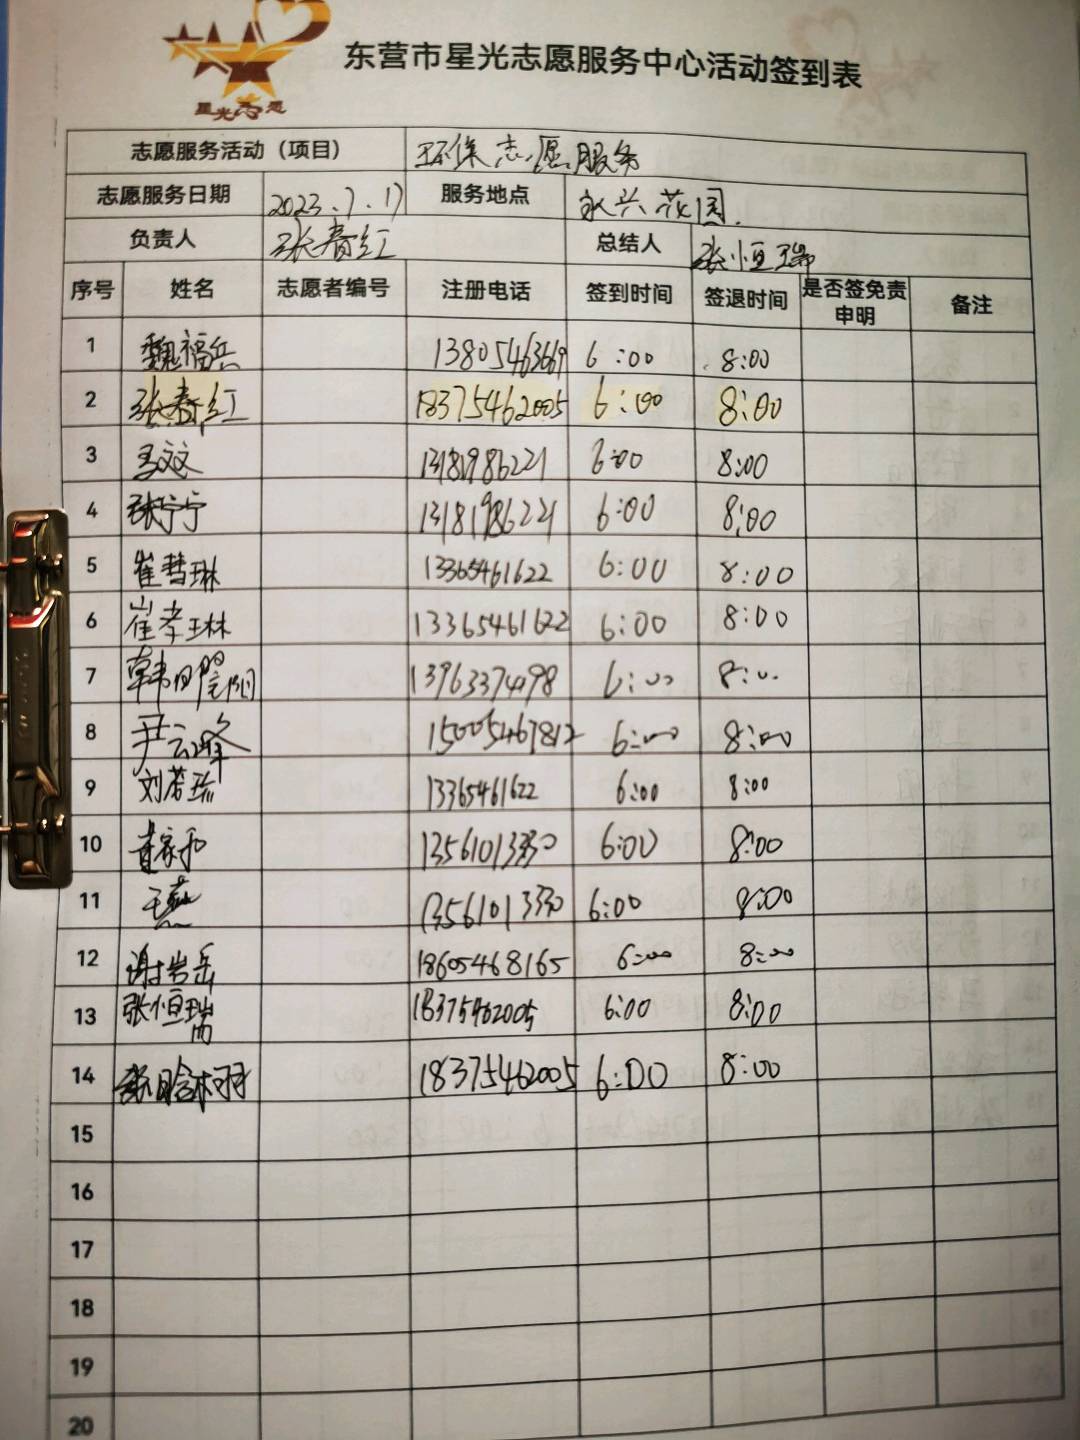 星光志愿
东营市星光志愿服务中心活动签到表
志愿服务活动（项目） 环保志愿服务
志愿服务日期 2023.7.17 服务地点 永兴花园.
负责人 张春红 总结人 张恒瑞
序号 姓名 志愿者编号 注册电话 签到时间 签退时间 是否签免责申明 备注
1 魏福兵 13805463669 6:00 8:00
2 张春红 18375462005 6:00 8:00
3 13181986221 6:00 8:00
4 张宁宁 13181986221 6:00 8:00
5 崔哲琳 13365461622 6:00 8:00
6 崔孝琳 13365461622 6:00 8:00
7 韩 6:00 8:00
8 尹云峰 15005467812 6:00 8:00
9 刘若 13365461622 6:00 8:00
10 13561013330 6:00 8:00
11 王燕 13561013330 6:00 8:00
12 谢岩岳 18605468165 6:00 8:00
13 张恒瑞 18375462005 6:00 8:00
14 张晗 18375462005 6:00 8:00
15
16
17
18
19
20